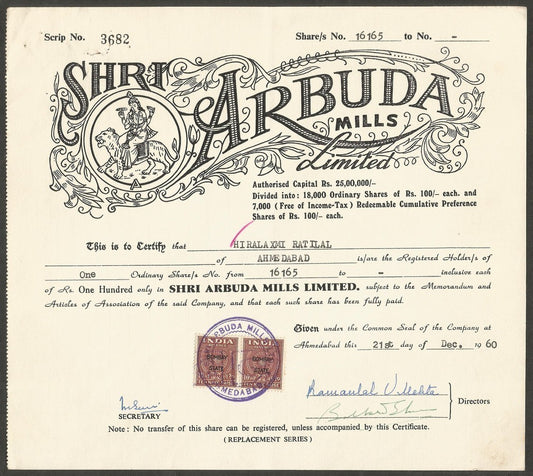 Scrip No. 3682 Share/s No. 16165 to No. -
SHRI ARBUDA
MILLS
Limited
Authorised Capital Rs. 25,00,000/-
Divided into: 18,000 Ordinary Shares of Rs. 100/- each. and
7,000 (Free of Income-Tax) Redeemable Cumulative Preference
Shares of Rs. 100/- each.
This is to Certify that HIRALAXMI RATILAL
of AHMEDABAD is/are the Registered Holder/s of
One Ordinary Share/s No. from 16165 to - inclusive each
of Rs. One Hundred only in SHRI ARBUDA MILLS LIMITED. subject to the Memorandum and
Articles of Association of the said Company, and that each such share has been fully paid.
Given under the Common Seal of the Company at
Ahmedabad this 21st day of Dec. 1960
ARBUDA MILLS
AHMEDABAD
INDIA INDIA
BOMBAY BOMBAY
STATE STATE
Ramanlal V. Mehta
Directors
SECRETARY
Note : No transfer of this share can be registered, unless accompanied by this Certificate.
(REPLACEMENT SERIES)